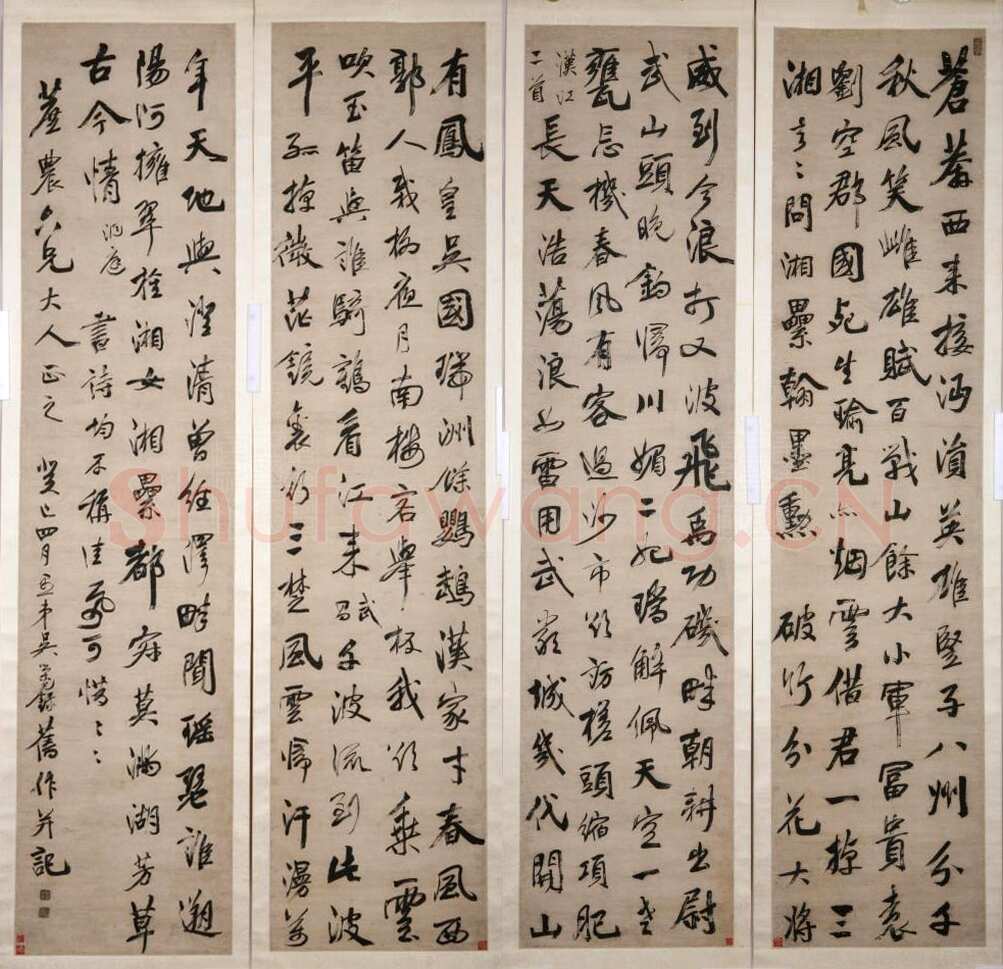 蒼莽西來接沔湞英雄豎子八州分千
秋風笑雌雄賦百戰山餘大小軍富貴袁
劉空郡國死生瑜亮亦烟雲借君一掉三
湘去〻問湘纍翰墨勳 破竹分花大將
威到今浪打又波飛為功磯畔朝耕出尉
武山頭晚釣歸川媚二妃瑤解佩天空一老
甕忘機春風有客過沙市欲訪槎頭縮項肥
漢江二首 長天浩蕩浪如雷用武嚴城幾代開山
有鳳皇吳國瑞洲餘鸚鵡漢家才春風西
郭人栽柳夜月南樓客舉杯我欲乘雲
吹玉笛與誰騎鶴看江來 武昌 千波流到此波
平孤掉微茫鏡裏行三楚風雲歸汗漫萬
年天地與澄清曾經澤畔聞瑤瑟誰遡
陽阿擁翠旌湘女湘纍都寂莫滿湖芳草
古今情 洞庭 書詩均不稱佳可惜〻〻
農六兄大人正之 癸巳四月愚弟吳錄舊作并記
Shufawang.CN